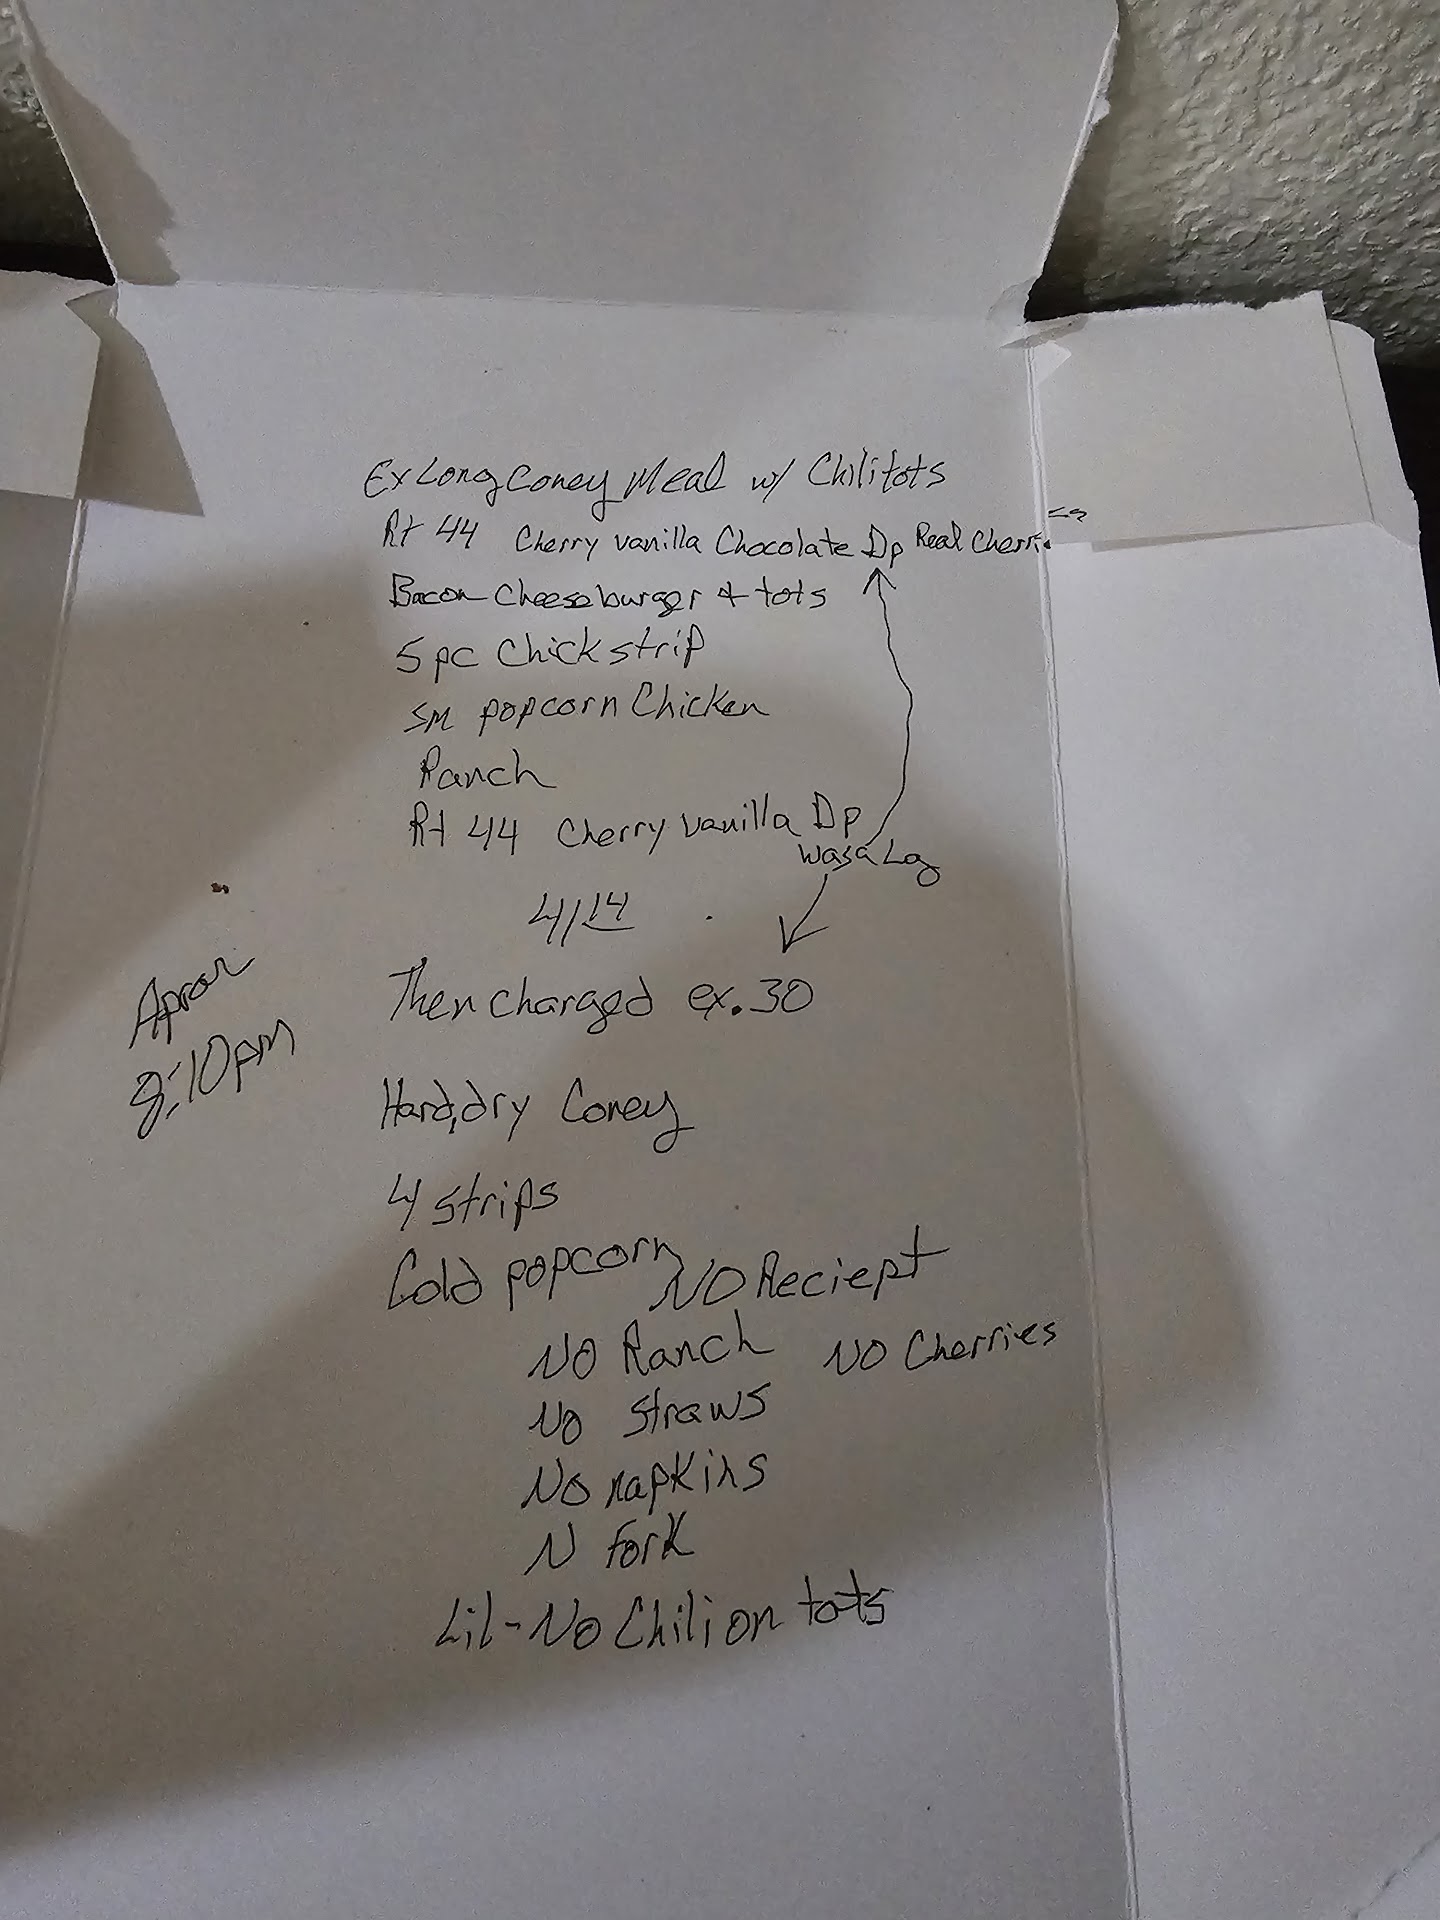 Ex Long Coney Meal w/ Chilitots
Rt 44 Cherry vanilla Chocolate Dp Real Cherries
Bacon Cheeseburger & tots
5 pc Chick strip
sm popcorn Chicken
Ranch
Rt 44 Cherry Vanilla Dp
was a Lg
41 14
Then charged ex .30
Aprox
8:10pm
Hard, dry Coney
4 strips
Cold popcorn
NO Reciept
NO Ranch
NO Cherries
No straws
No napkins
N fork
Lil-No Chili on tots